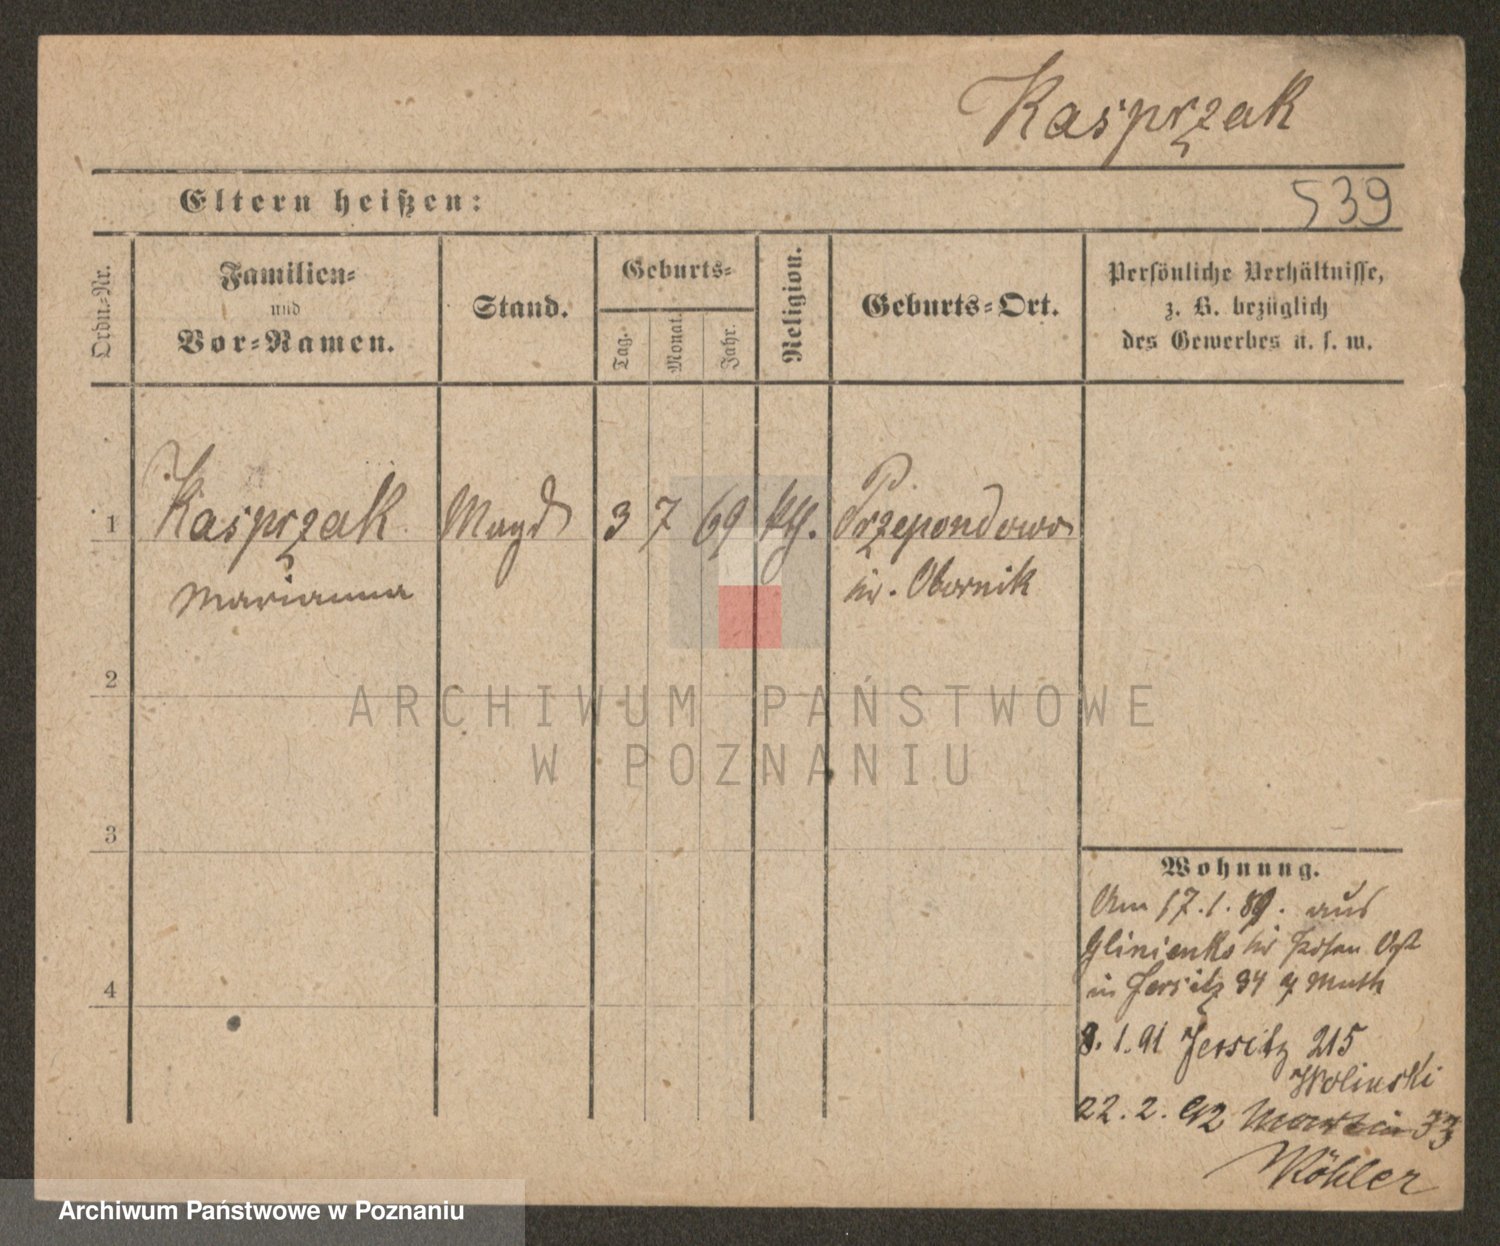 Kasprzak
Eltern heißen:
539
Ordn.-Nr.
Familien-
und
Vor-Namen.
Stand.
Geburts-
Tag.
Monat.
Jahr.
Religion.
Geburts-Ort.
Persönliche Verhältnisse,
z. B. bezüglich
des Gewerbes u. s. w.
1
Kasprzak Magd 3 7 69 kth. Przependowo
Marianna
kr. Obornik
2
ARCHIWUM PAŃSTWOWE
W POZNANIU
3
4
Wohnung.
Am 17.1.89. aus
Glinienko kr Posen Ost
in Jersitz 34 Muth
8.1.91 Jersitz 215
Wolinski
22.2.92 Martin 33
Köhler
Archiwum Państwowe w Poznaniu